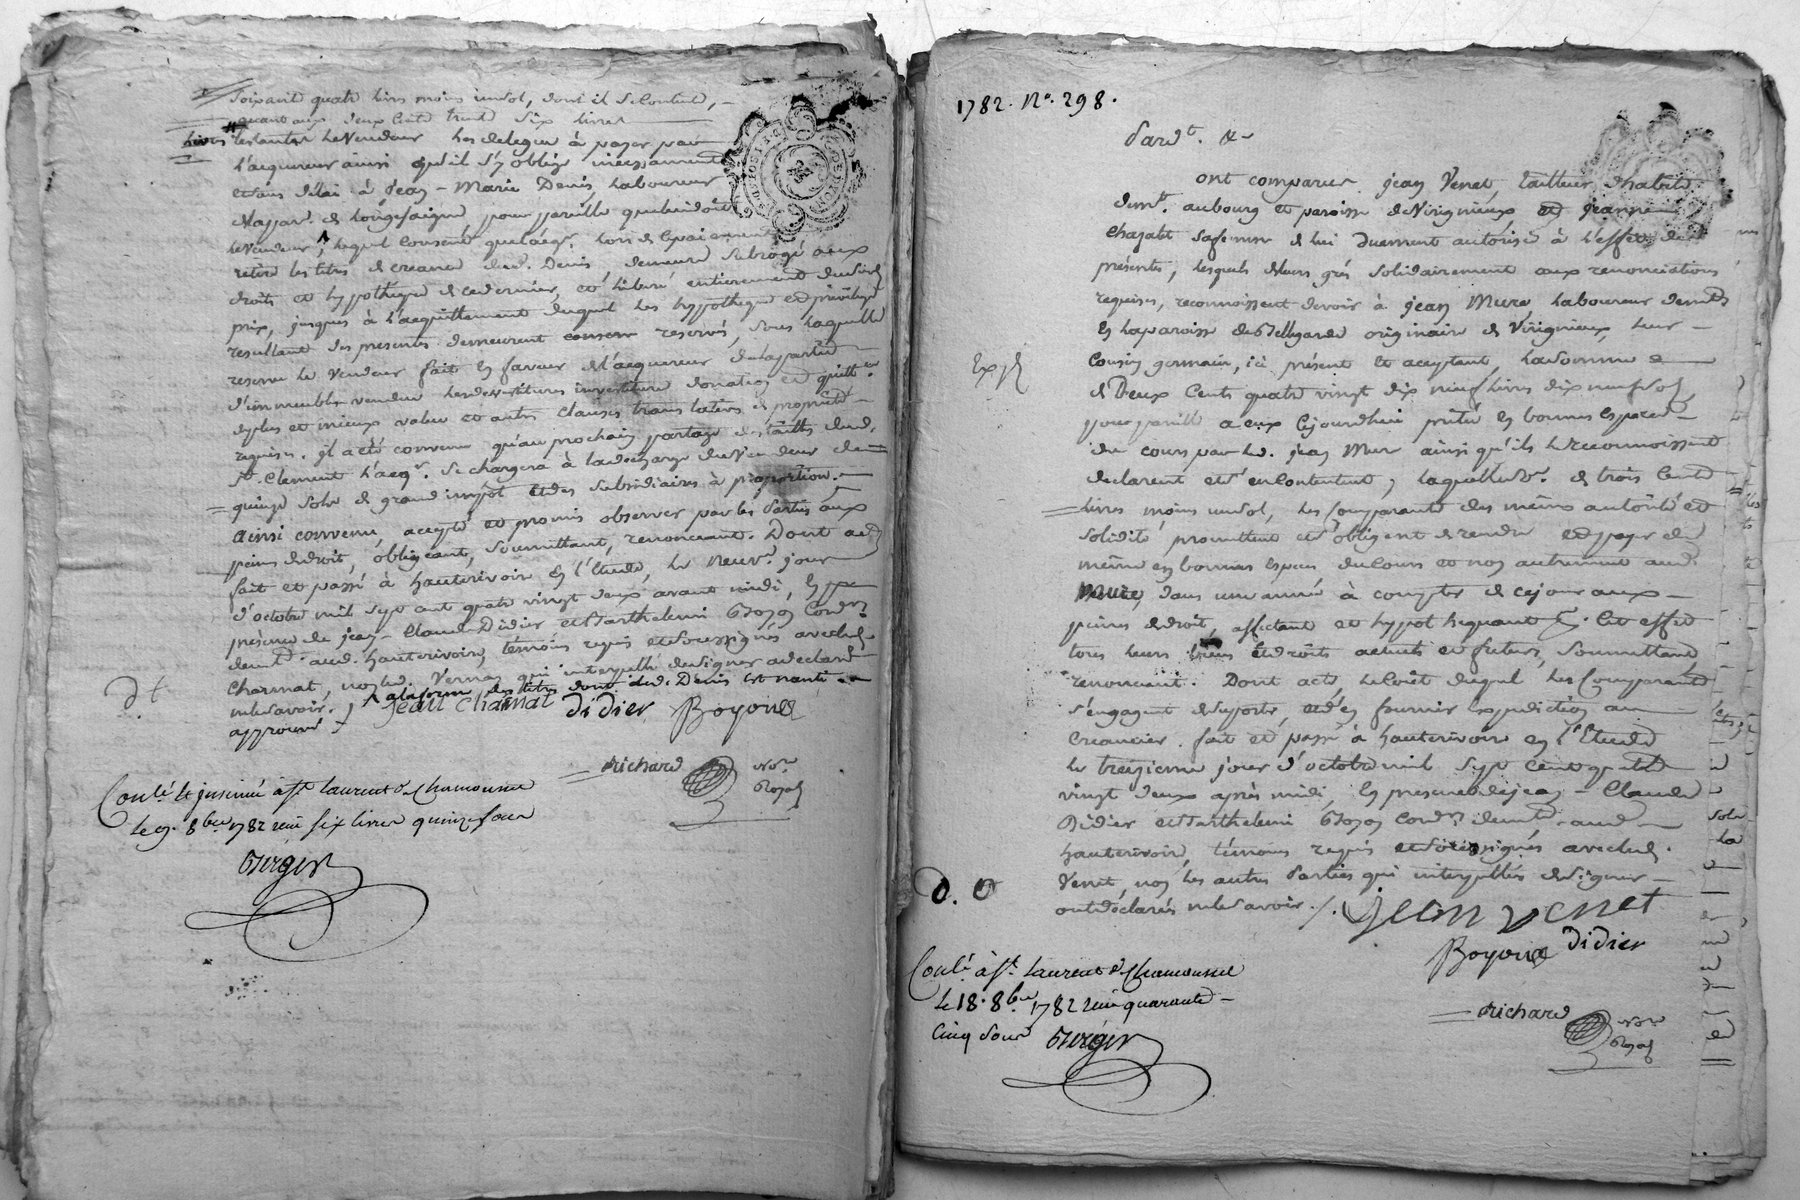 soixante quatre livres moins un sol, dont il se contente,
quant aux deux cents trente six livres
restantes le vendeur les delegue à payer par
l'acquereur ainsi qu'il s'y oblige incessamment
et sans délai à Jean-Marie Denis, laboureur
de longesaigne pour pareille que lui doit
le vendeur, lequel consent que l'acqr. lors de le paiement
retire les titres de creance dud. Denis, demeure subrogé aux
droits et hypotheque de ce dernier, et libéré entierement dudit
prix, jusques à l'acquittement duquel les hypotheque et privilege
resultant des presentes demeurent reservés, sous laquelle
reserve le vendeur fait en faveur de l'acquereur de la partie
d'immeuble vendue les devestitures investiture donation et quitt.ce
de plus et mieux value et autres clauses translatives de proprieté
requises. il a été convenu qu'au prochain partage des tailles dud.
St. Clement l'acqr. se chargera à la décharge du vendeur de
quinze sols de grand impôt et des subsidiaires à proportion.
ainsi convenu, accepté et promis observer par les parties aux
peines de droit, obligeant, soumettant, renonceant. Dont acte
fait et passé à hauterivoir en l'Etude, le neuv.e jour
d'octobre mil sept cent quatre vingt deux avant midi, en
présence de jean-Claude Didier et Barthelemi Boyon Cordr.
demt. aud. hauterivoir, témoins requis et soussignés avec led.
Charmat, non led. Vernay qui interpellé de signer a declaré
ne le savoir. / ^ a la forme des titres dont led. Denis est nanti
approuvé
Jean Charmat Didier Boyon
D t
Richard Nore
Royal
Conlé et insinué à St Laurent de Chamousset
le 9. 8bre 1782 reçu six livres quinze sous
Berger
1782. No. 298.
Pardt. &
ont comparu jean Venet, tailleur d'habits
demt. au bourg et paroisse de Virigneux et jeanne
Chazalet sa femme de lui duement autorisée à l'effet des
présentes, lesquels de leurs grés solidairement aux renonciations
requises, reconnoissent devoir à jean Mure laboureur demt.
en la paroisse de Bellegarde originaire de Virigneux, leur
Cousin germain, ici présent et acceptant, la somme
de Deux Cents quatre vingt dix neuf livres dix neuf sols,
pour pareille a eux cejourd'hui prêtée en bonnes especes
du cours par led. jean Mure ainsi qu'ils le reconnoissent
declarent et s'en contentent, laquelle so. de trois Cents
livres moins un sol, les comparants des mêmes autorité et
solidité promettent et s'obligent de rendre et payer de
même en bonnes especes du cours et non autrement aud.
Mure, dans une année à compter de ce jour aux
peines de droit, affectant et hypothequant à cet effet
tous leurs biens et droits actuels et futurs, soumettant
renonceant. Dont acte, le coût duquel les comparants
s'engagent de suporter, et d'en fournir expedition au
Creancier. fait et passé à hauterivoir en l'Etude
le treizieme jour d'octobre mil sept cents quatre
vingt deux après midi, en presence de jean-Claude
Didier et Barthelemi Boyon Cordr. demt. aud.
hauterivoir, témoins requis et soussignés avec led.
Venet, non les autres parties qui interpellées de signer
ont declarés ne le savoir. /. jean venet
Expé
D. O
Boyon Didier
Richard Nore
Royal
Conlé à St. Laurent de Chamousset
le 18. 8bre 1782 reçu quarante
Cinq sous Berger